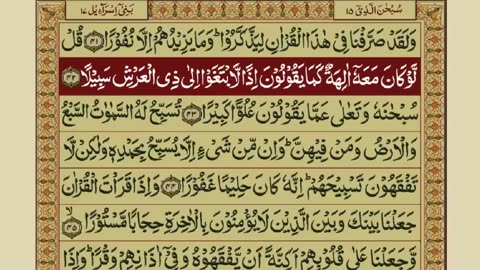 سُبْحٰنَ الَّذِیْۤ ۱۵
بَنِیْۤ اِسْرَآءِیْل ۱۷
وَلَقَدْ صَرَّفْنَا فِیْ هٰذَا الْقُرْاٰنِ لِیَذَّكَّرُوْاؕ وَمَا یَزِیْدُهُمْ اِلَّا نُفُوْرًا ﴿۴۱﴾ قُلْ
لَّوْ كَانَ مَعَهٗۤ اٰلِهَةٌ كَمَا یَقُوْلُوْنَ اِذًا لَّابْتَغَوْا اِلٰی ذِی الْعَرْشِ سَبِیْلًا ﴿۴۲﴾
سُبْحٰنَهٗ وَتَعٰلٰی عَمَّا یَقُوْلُوْنَ عُلُوًّا كَبِیْرًا ﴿۴۳﴾ تُسَبِّحُ لَهُ السَّمٰوٰتُ السَّبْعُ
وَالْاَرْضُ وَمَنْ فِیْهِنَّؕ وَاِنْ مِّنْ شَیْءٍ اِلَّا یُسَبِّحُ بِحَمْدِهٖ وَلٰكِنْ لَّا
تَفْقَهُوْنَ تَسْبِیْحَهُمْؕ اِنَّهٗ كَانَ حَلِیْمًا غَفُوْرًا ﴿۴۴﴾ وَاِذَا قَرَاْتَ الْقُرْاٰنَ
جَعَلْنَا بَیْنَكَ وَبَیْنَ الَّذِیْنَ لَا یُؤْمِنُوْنَ بِالْاٰخِرَةِ حِجَابًا مَّسْتُوْرًا ﴿۴۵﴾ۙ
وَّجَعَلْنَا عَلٰی قُلُوْبِهِمْ اَكِنَّةً اَنْ یَّفْقَهُوْهُ وَفِیْۤ اٰذَانِهِمْ وَقْرًاؕ وَاِذَا